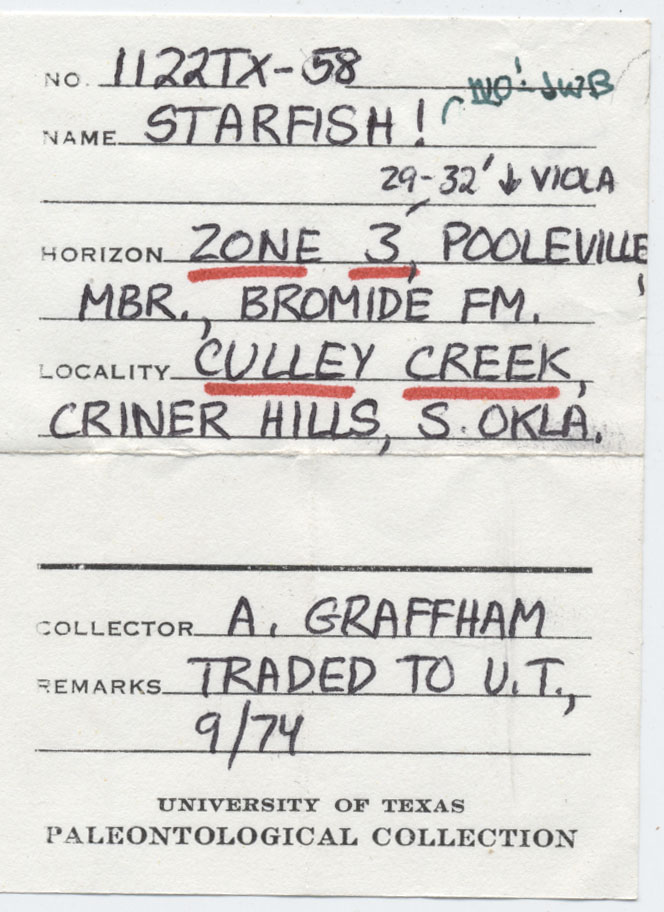 NO. 1122TX-58
NO! JWB
NAME STARFISH!
29-32' ↓ VIOLA
HORIZON ZONE 3, POOLEVILLE
MBR., BROMIDE FM.
LOCALITY CULLEY CREEK,
CRINER HILLS, S. OKLA.
COLLECTOR A. GRAFFHAM
REMARKS TRADED TO U.T.,
9/74
UNIVERSITY OF TEXAS
PALEONTOLOGICAL COLLECTION